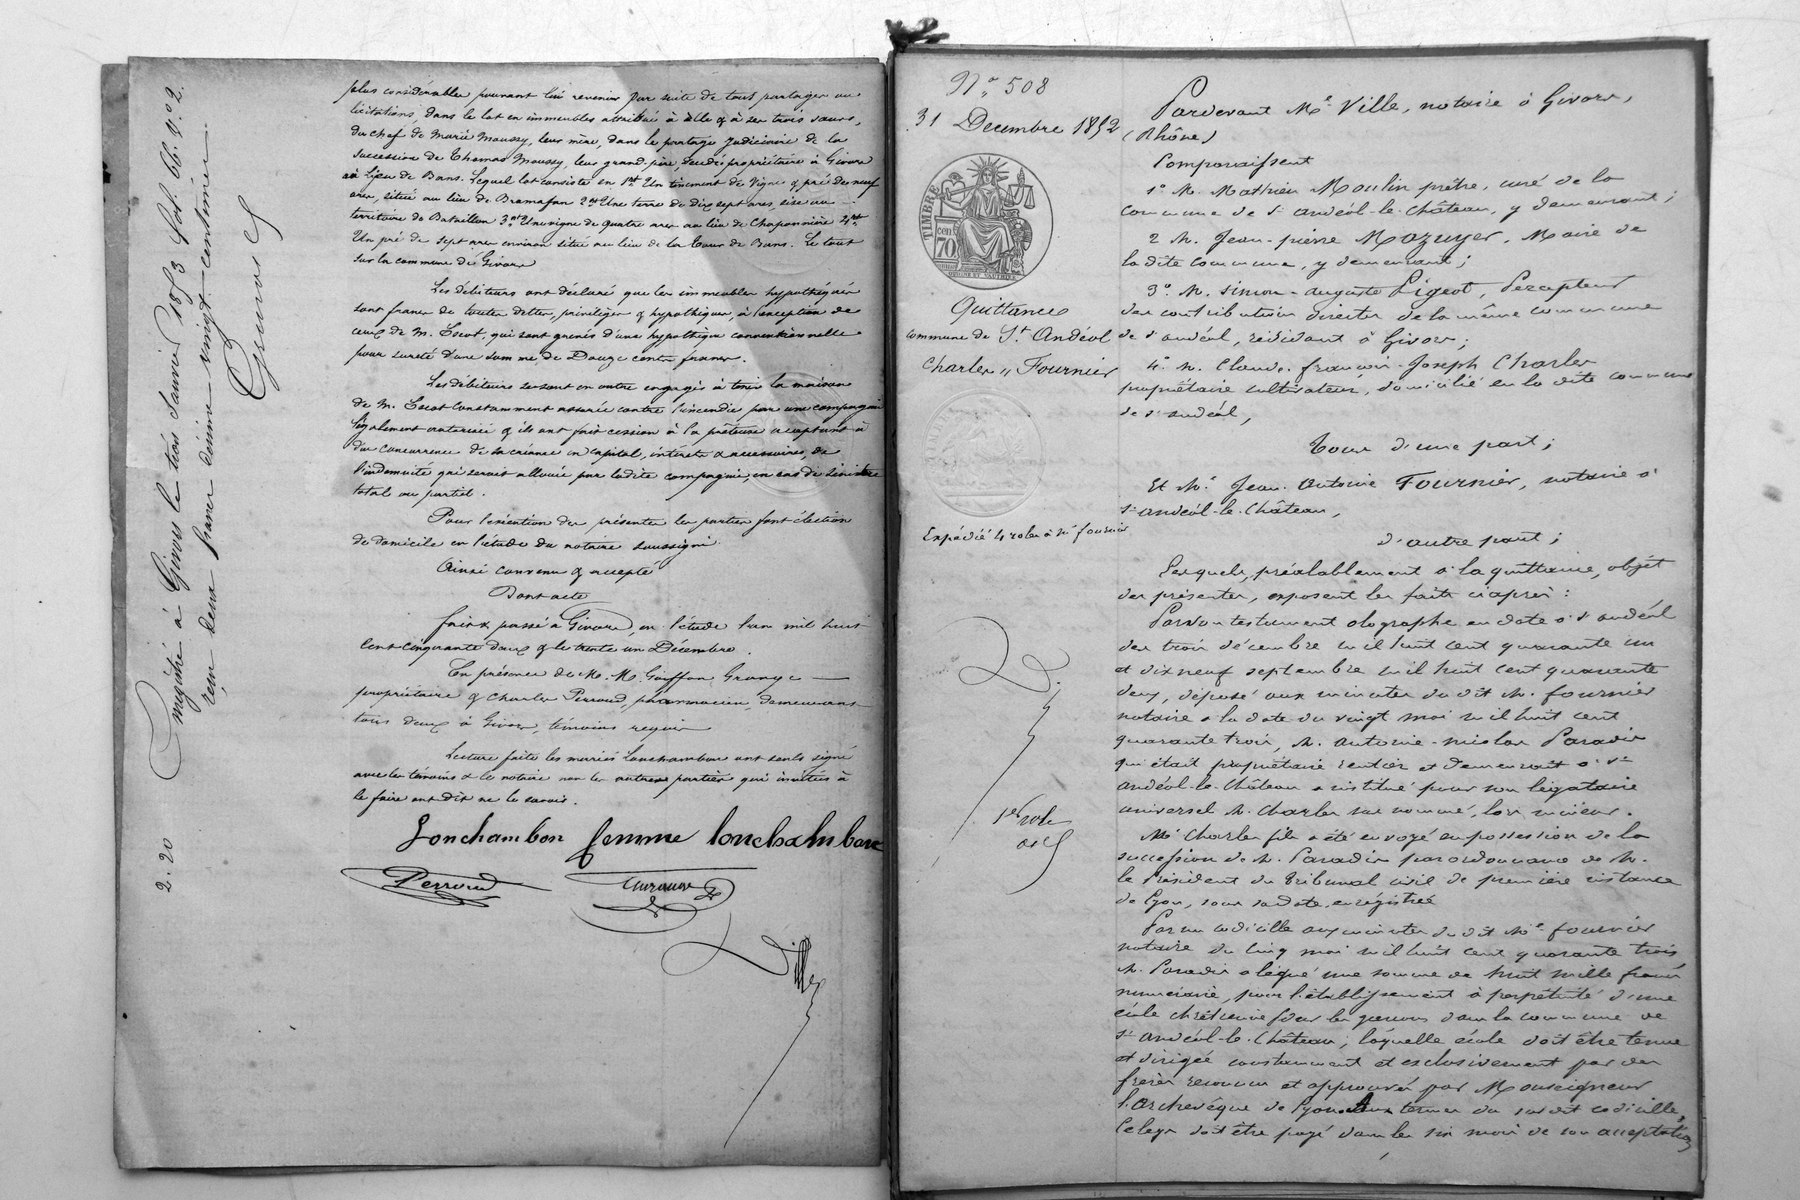 plus considérables pouvant lui revenir par suite de tous partages ou
licitations, dans le lot en immeubles attribué à elle & à ses trois sœurs,
du chef de Marie Moussy, leur mère, dans le partage judiciaire de la
succession de Thomas Moussy, leur grand-père, décédé propriétaire à Givors
au lieu de Bans. Lequel lot consiste en 1ent Un tènement de vigne & pré de neuf
ares, situé au lieu de Bramafan 2ent Une terre de dix sept ares, sise au
territoire de Bataillon 3ent Une vigne de quatre ares au lieu de Chaponnière 4ent
Un pré de sept ares environ situé au lieu de la Tour de Bans. Le tout
sur la commune de Givors
Les débiteurs ont déclaré que les immeubles hypothéqués
sont francs de toutes dettes, privilèges & hypothèques, à l'exception de
ceux de M. Escot, qui sont grevés d'une hypothèque conventionnelle
pour sureté d'une somme de Douze cents francs.
Les débiteurs se sont en outre engagés à tenir la maison
de M. Escot constamment assurée contre l'incendie par une compagnie
légalement autorisée & ils ont fait cession à la prêteuse acceptant à
due concurrence de sa créance en capital, intérêts & accessoires, de
l'indemnité qui serait allouée par ladite compagnie, en cas de sinistre
total ou partiel.
Pour l'exécution des présentes les parties font élection
de domicile en l'étude du notaire soussigné
Ainsi convenu & accepté
Dont acte
fait & passé à Givors, en l'étude l'an mil huit
cent cinquante deux & le trente un Décembre.
En présence de M. M. Goiffon Grange
propriétaire & Charles Perroud, pharmacien, demeurans
tous deux à Givors, témoins requis
Lecture faite les mariés Lonchambon ont seuls signé
avec les témoins & le notaire non les autres parties qui invitées à
le faire ont dit ne le savoir.
Lonchambon femme lonchambon
Perroud
Ville
Enregistré à Givors le trois Janvier 1853 fol. 66. v° 2.
reçu deux francs décime vingt centimes
2.20
N° 508
31 Décembre 1852
TIMBRE
70
Quittance
commune de St Andéol
Charles & Fournier
Expédié 4 roles à Me fournier
1er role
Pardevant Me Ville, notaire à Givors,
(Rhône)
Comparaissent
1° M. Mathieu Moulin prêtre, curé de la
commune de St andéol-le-Château, y demeurant;
2 M. Jean-pierre Mazuyer, Maire de
la dite commune, y demeurant;
3° M. simon-auguste Ligeot, Percepteur
des contributions directes de la même commune
de St andéol, résidant à Givors;
4° M. Claude-françois-Joseph Charles
propriétaire cultivateur, domicilié en la dite commune
de St andéol,
Tous d'une part;
Et Me Jean-Antoine Fournier, notaire à
St andéol-le-Château,
d'autre part;
Lesquels, préalablement à la quittance, objet
des présentes, exposent les faits ciaprès:
Par son testament olographe en date à St andéol
des trois décembre mil huit cent quarante un
et dixneuf septembre mil huit cent quarante
deux, déposé aux minutes du dit Me fournier
notaire à la date du vingt mai mil huit cent
quarante trois, M. Antoine-nicolas Paradis
qui était propriétaire rentier et demeurait à St
andéol-le-Château a institué pour son légataire
universel M. Charles sus nommé, lors mineur.
Me Charles fils a été envoyé en possession de la
succession de M. Paradis par ordonnance de M.
le Président du tribunal civil de première instance
de Lyon, sous sa date, enregistrée
Par un codicille aux minutes du dit Me fournier
notaire du cinq mai mil huit cent quarante trois,
M. Paradis a légué une somme de huit mille francs
numéraire, pour l'établissement à perpétuité d'une
école chrétienne pour les garçons dans la commune de
St andéol-le-Château; laquelle école doit être tenue
et dirigée constamment et exclusivement par des
frères reconnus et approuvés par Monseigneur
l'archevêque de Lyon. Aux termes du susdit codicille,
ce legs doit être payé dans les six mois de son acceptation,